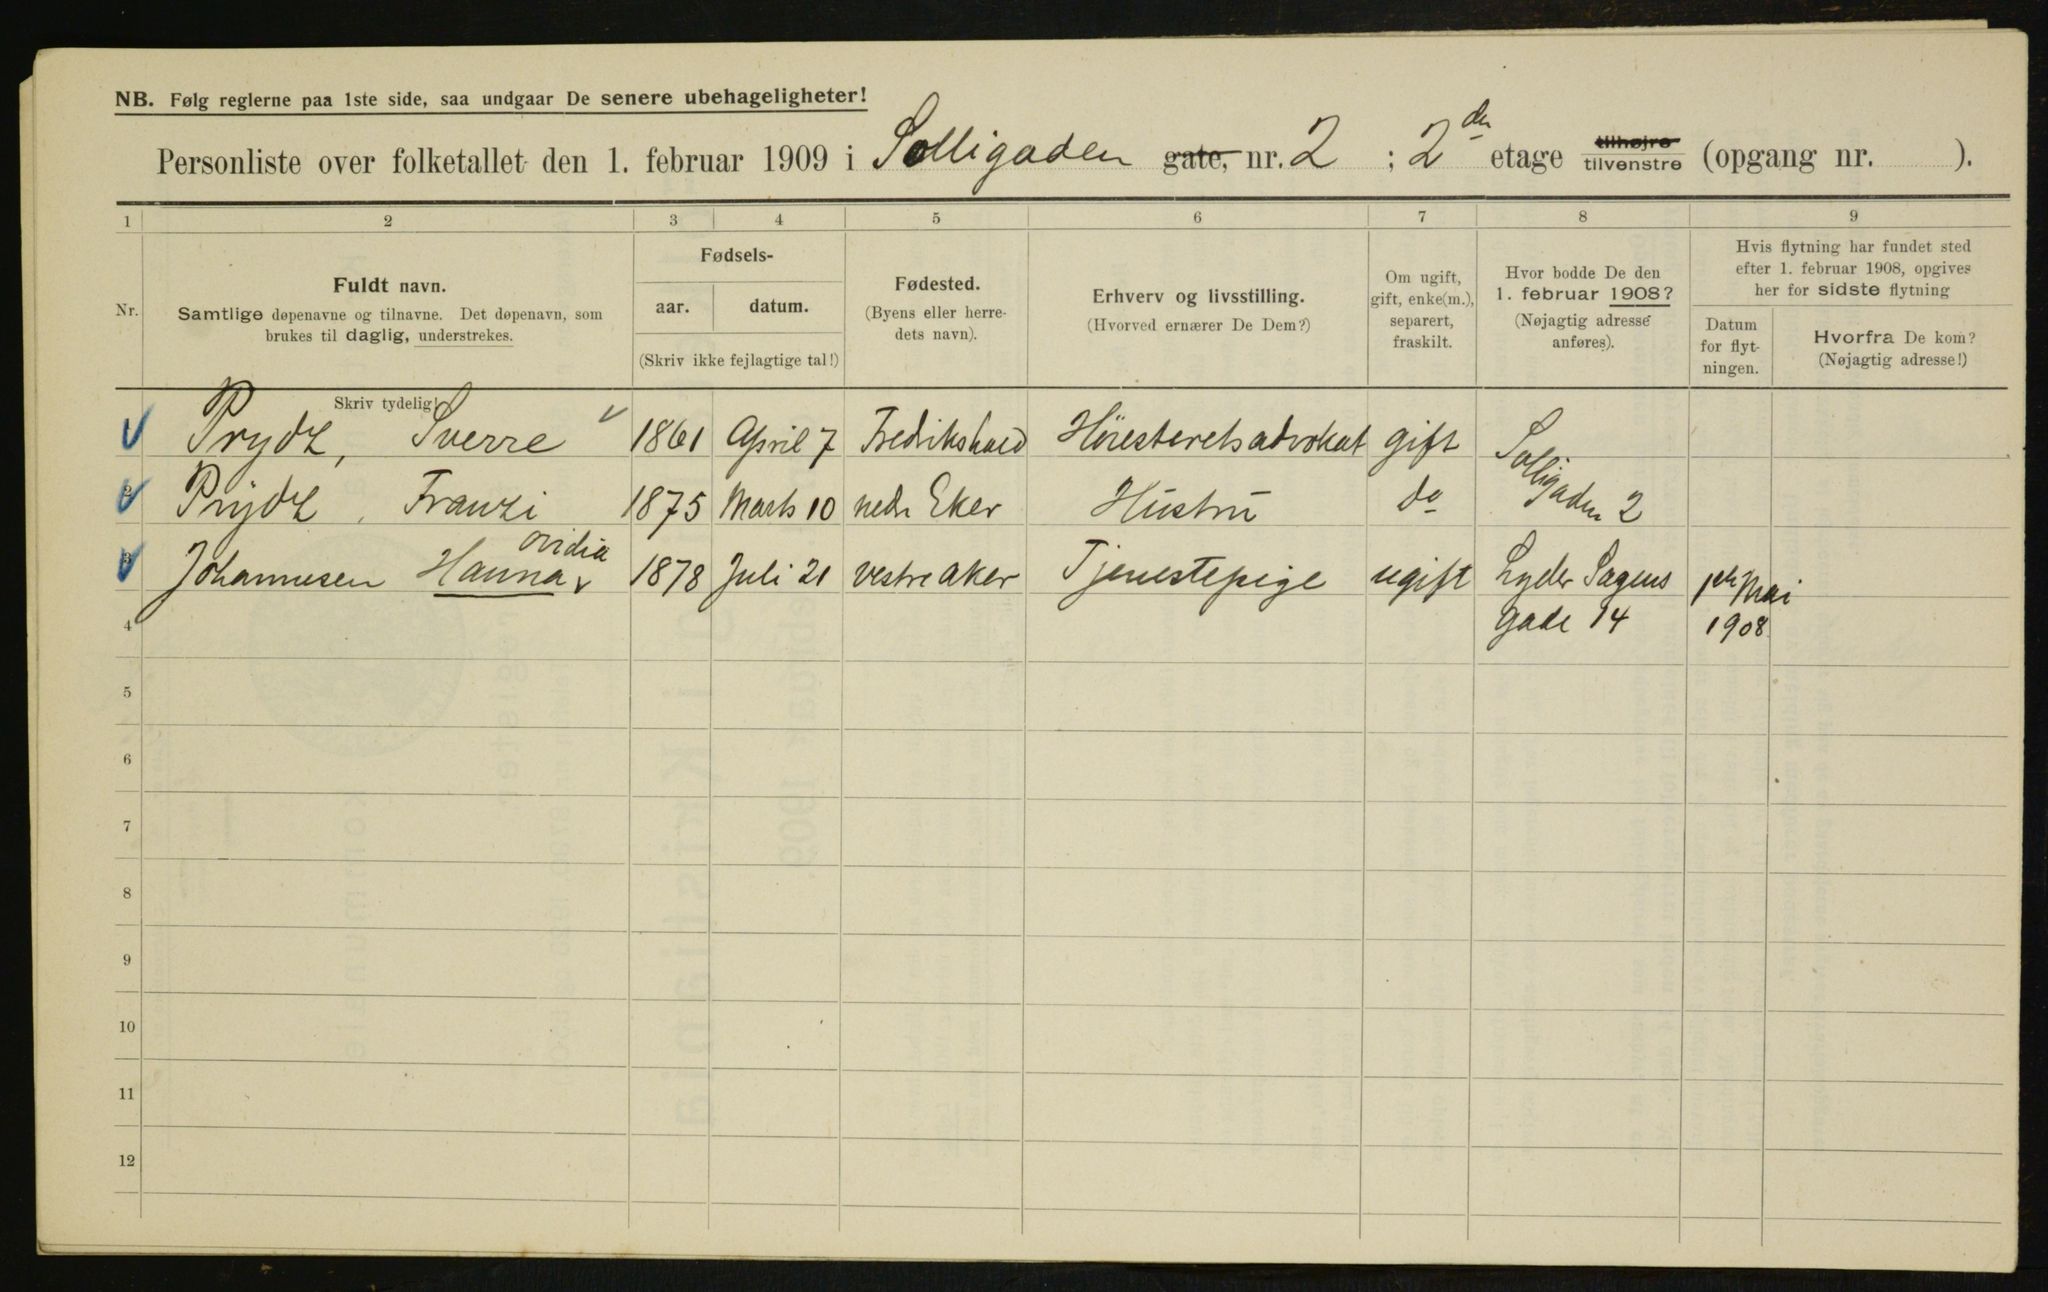 NB. Følg reglerne paa 1ste side, saa undgaar De senere ubehageligheter!
Personliste over folketallet den 1. februar 1909 i Solligaden gate, nr. 2 ; 2den etage tilhøjre tilvenstre (opgang nr. ).
1 2 3 4 5 6 7 8 9
Nr.
Fuldt navn.
Samtlige døpenavne og tilnavne. Det døpenavn, som
brukes til daglig, understrekes.
Fødsels-
aar. datum.
(Skriv ikke fejlagtige tal!)
Fødested.
(Byens eller herre-
dets navn).
Erhverv og livsstilling.
(Hvorved ernærer De Dem?)
Om ugift,
gift, enke(m.),
separert,
fraskilt.
Hvor bodde De den
1. februar 1908?
(Nøjagtig adresse
anføres).
Hvis flytning har fundet sted
efter 1. februar 1908, opgives
her for sidste flytning
Datum
for flyt-
ningen.
Hvorfra De kom?
(Nøjagtig adresse!)
Skriv tydelig!
Prydz, Sverre 1861 April 7 Fredrikshald Høiesteretsadvokat gift Solligaden 2
Prydz, Franzi 1875 Marts 10 nedre Eker Hustru do
Johannesen Hanna ovidia 1878 Juli 21 vestre Aker Tjenestepige ugift Lyder Sagens 1ste Mai
4 gade 14 1908
5
6
7
8
9
10
11
12